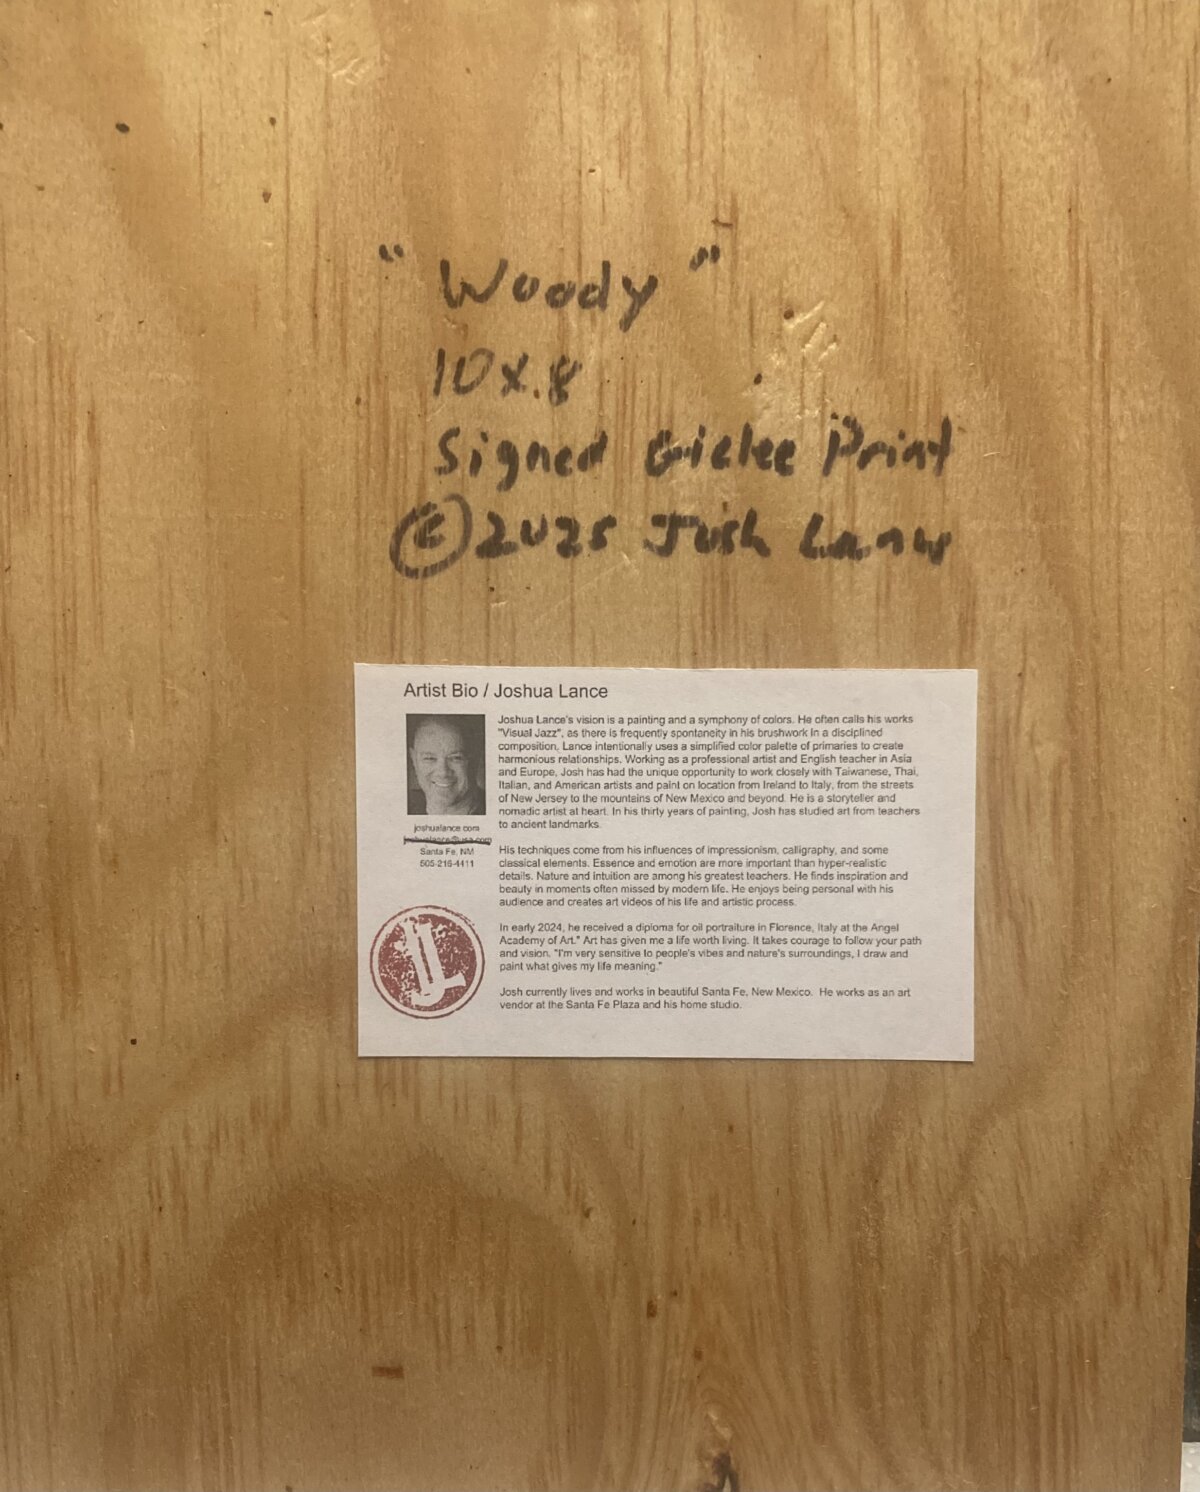 "Woody"
10 x 8
Signed Giclee Print
© 2025 Josh Lance
Artist Bio / Joshua Lance
Joshua Lance's vision is a painting and a symphony of colors. He often calls his works
"Visual Jazz", as there is frequently spontaneity in his brushwork in a disciplined
composition. Lance intentionally uses a simplified color palette of primaries to create
harmonious relationships. Working as a professional artist and English teacher in Asia
and Europe, Josh has had the unique opportunity to work closely with Taiwanese, Thai,
Italian, and American artists and paint on location from Ireland to Italy, from the streets
of New Jersey to the mountains of New Mexico and beyond. He is a storyteller and
nomadic artist at heart. In his thirty years of painting, Josh has studied art from teachers
to ancient landmarks.
joshualance.com
joshualance@usa.com
Santa Fe, NM
505-216-4411
His techniques come from his influences of impressionism, calligraphy, and some
classical elements. Essence and emotion are more important than hyper-realistic
details. Nature and intuition are among his greatest teachers. He finds inspiration and
beauty in moments often missed by modern life. He enjoys being personal with his
audience and creates art videos of his life and artistic process.
In early 2024, he received a diploma for oil portraiture in Florence, Italy at the Angel
Academy of Art." Art has given me a life worth living. It takes courage to follow your path
and vision. "I'm very sensitive to people's vibes and nature's surroundings, I draw and
paint what gives my life meaning."
Josh currently lives and works in beautiful Santa Fe, New Mexico. He works as an art
vendor at the Santa Fe Plaza and his home studio.
JL